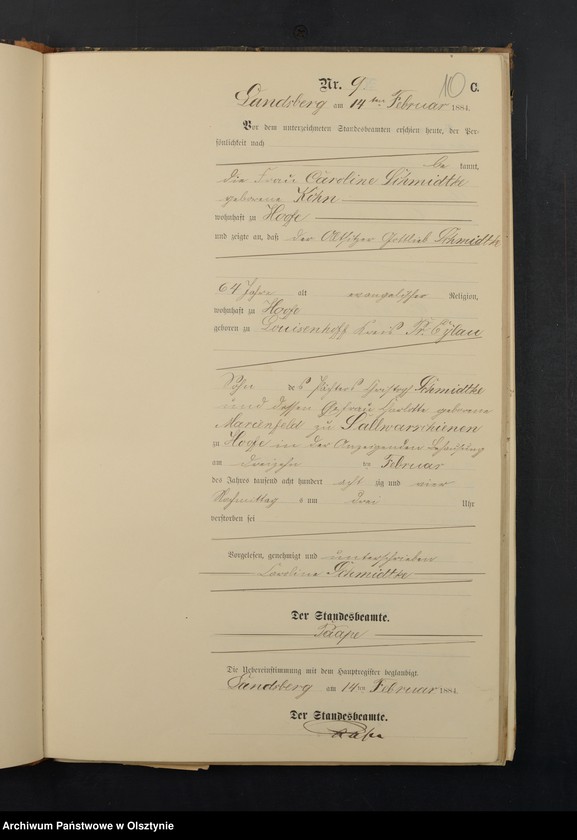 Nr. 9
10 C.
Landsberg am 14ten Februar 1884.
Vor dem unterzeichneten Standesbeamten erschien heute, der Per-
sönlichkeit nach
be kannt,
die Frau Caroline Schmidtke
geborene Köhn
wohnhaft zu Hoofe
und zeigte an, daß der Altsitzer Gottlieb Schmidtke
64 Jahre alt evangelischer Religion,
wohnhaft zu Hoofe
geboren zu Louisenhoff Kreis Pr. Eylau
Sohn des Christoph Schmidtke
und dessen Ehefrau geborene
Marienfeld zu Sallwarschienen
zu Hoofe in der Anzeigenden Behausung
am dreizehn ten Februar
des Jahres tausend acht hundert acht zig und vier
Nachmittag s um drei Uhr
verstorben sei
Vorgelesen, genehmigt und unterschrieben
Caroline Schmidtke
Der Standesbeamte.
Die Uebereinstimmung mit dem Hauptregister beglaubigt.
Landsberg am 14ten Februar 1884.
Der Standesbeamte.
Archiwum Państwowe w Olsztynie